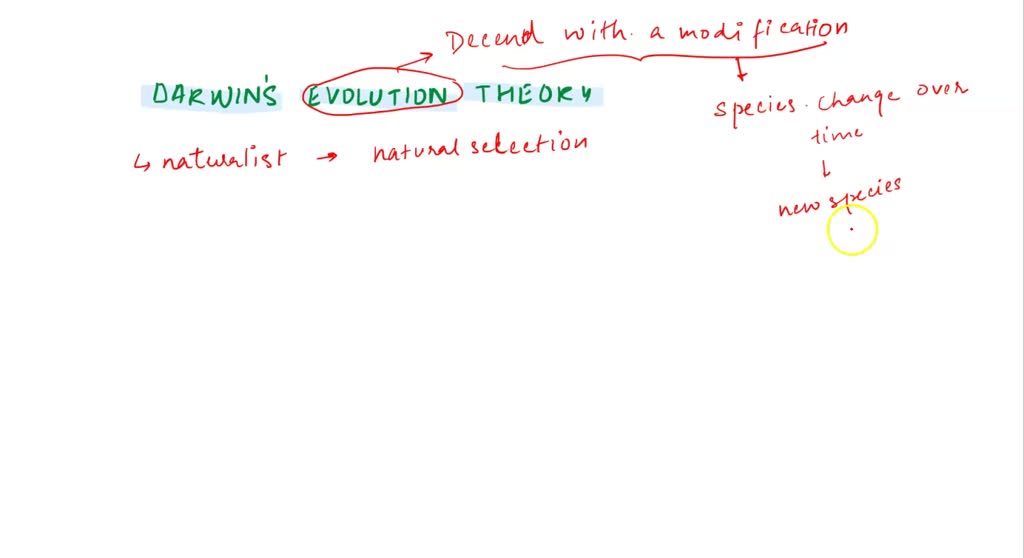 Decend with a modification
DARWIN'S EVOLUTION THEORY
species change over
time
↳ naturalist → natural selection
new species